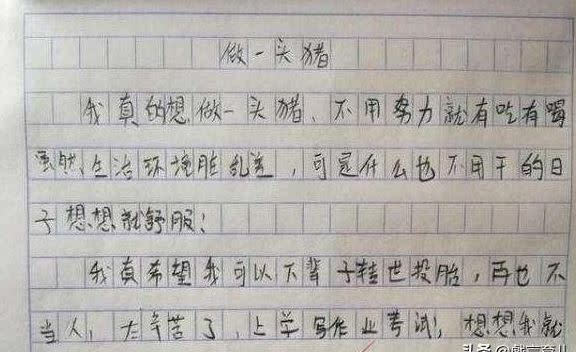 做一头猪
我真的想做一头猪、不用努力就有吃有喝
虽然、生治环境脏乱差，可是什么也不用干的日
子想想就舒服！
我真希望我可以下辈子转世投胎，再也不
当人，太辛苦了，上学写作业考试，想想我就